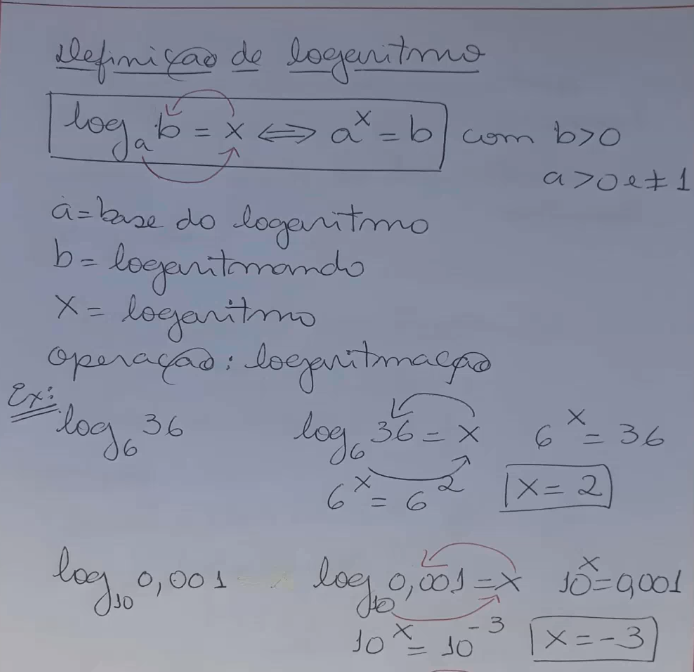 Definição de logaritmo
logₐ b = x ⟺ aˣ = b com b>0
a>0 e ≠ 1
a = base do logaritmo
b = logaritmando
x = logaritmo
operação: logaritmação
Ex:
log₆ 36 log₆ 36 = x 6ˣ = 36
6ˣ = 6² x = 2
log₁₀ 0,001 log₁₀ 0,001 = x 10ˣ = 0,001
10ˣ = 10⁻³ x = -3